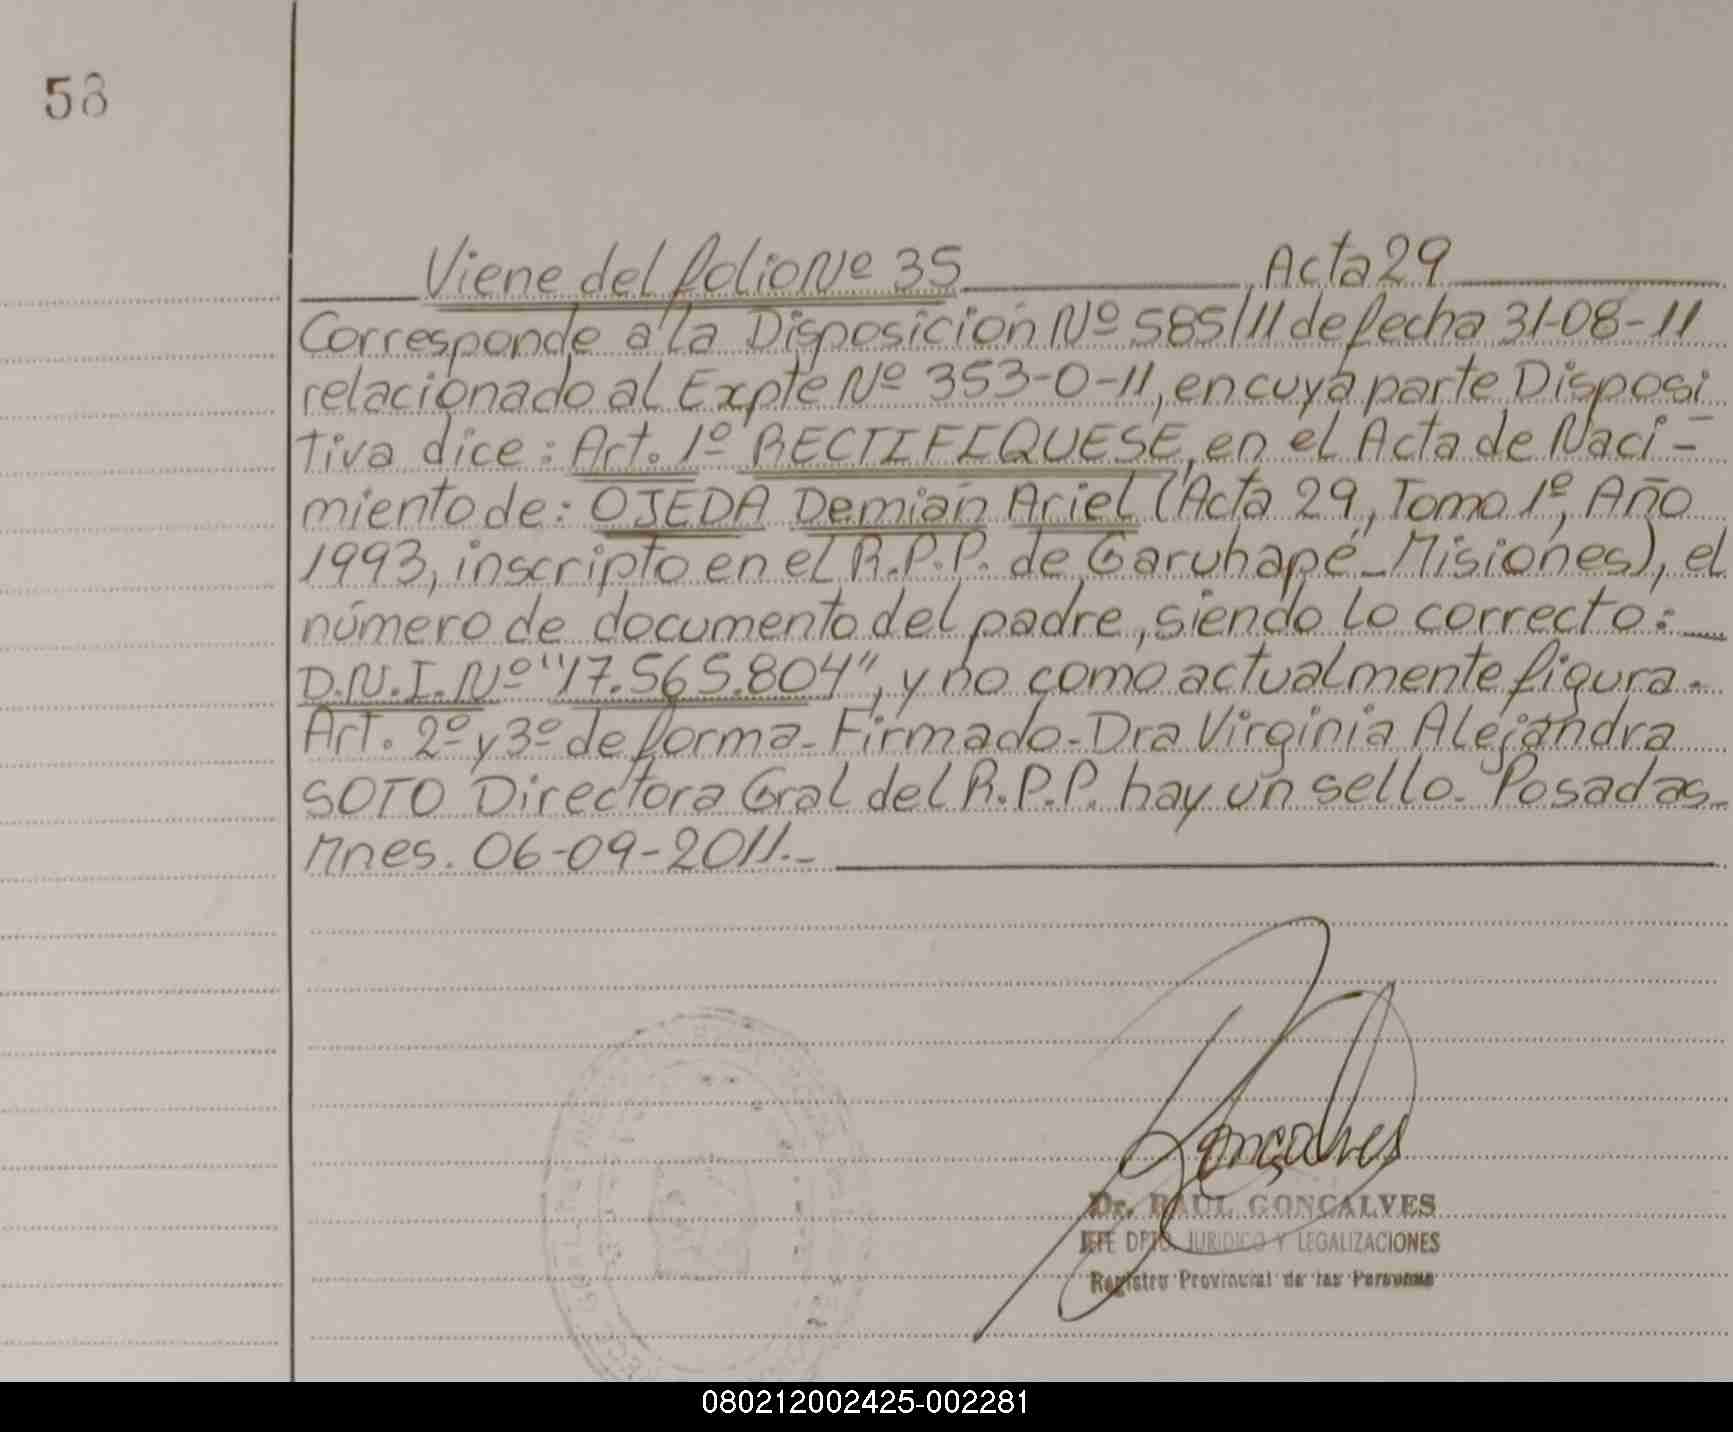 58
Viene del folio Nº 35 Acta 29
Corresponde a la Disposición Nº 585/11 de fecha 31-08-11
relacionado al Expte Nº 353-O-11, en cuya parte Disposi
tiva dice: Art. 1º RECTIFIQUESE, en el Acta de Naci-
miento de: OJEDA Demián Ariel (Acta 29, Tomo 1º, Año
1993, inscripto en el R.P.P. de Garuhapé-Misiones), el
número de documento del padre, siendo lo correcto:
D.N.I. Nº "17.565.804", y no como actualmente figura.
Art. 2º y 3º de forma- Firmado- Dra Virginia Alejandra
SOTO Directora Gral del R.P.P. hay un sello- Posadas-
Mnes. 06-09-2011.-
Goncalves
Dr. RAUL GONCALVES
JEFE DPTO. JURIDICO Y LEGALIZACIONES
Registro Provincial de las Personas
080212002425-002281